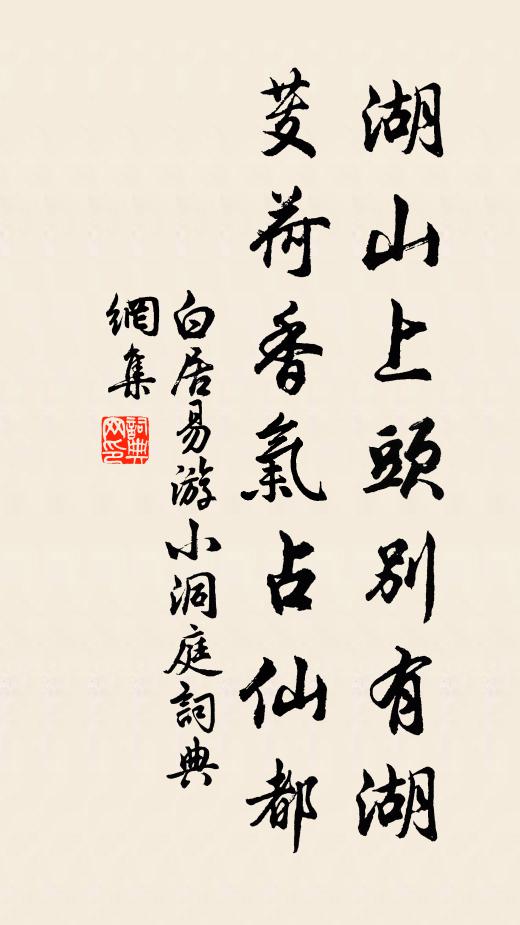 湖山上頭別有湖
芰荷香氣占仙都
白居易游小洞庭詞典
網集
詞典
网印